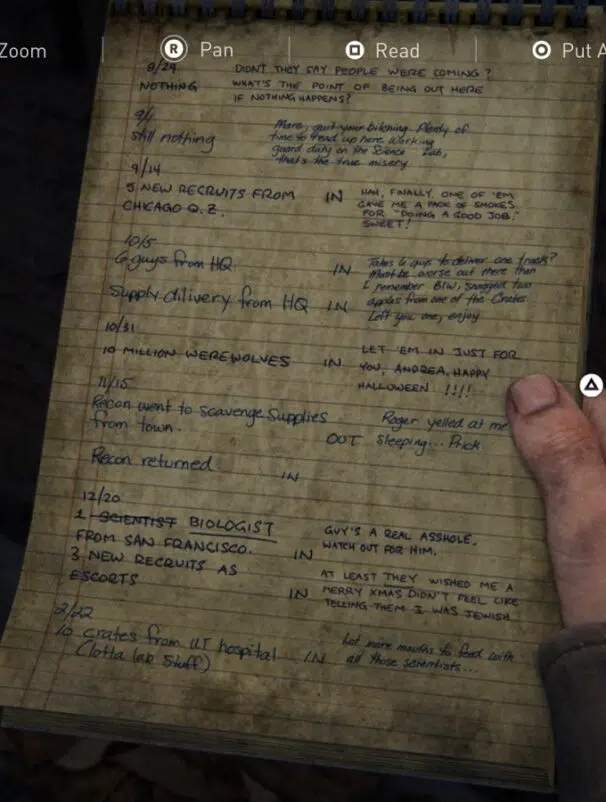 Zoom
R Pan
Read
Put A
8/29 DIDN'T THEY SAY PEOPLE WERE COMING?
NOTHING WHAT'S THE POINT OF BEING OUT HERE
IF NOTHING HAPPENS?
9/1
still nothing
Marc, quit your bitching. Plenty of
time to read up here. Working
guard duty on the Science Lab,
that's the true misery
9/14
5 NEW RECRUITS FROM IN
CHICAGO Q.Z.
HAH, FINALLY. ONE OF 'EM
GAVE ME A PACK OF SMOKES
FOR "DOING A GOOD JOB,"
SWEET!
10/5
6 guys from HQ IN
Supply dilivery from HQ IN
Takes 6 guys to deliver one truck?
Must be worse out there than
I remember BTW, snagged two
apples from one of the Crates
Left you one, enjoy
10/31
10 MILLION WEREWOLVES IN
LET 'EM IN JUST FOR
YOU, ANDREA, HAPPY
HALLOWEEN !!!!
11/15
Recon went to Scavenge Supplies
from town. OUT
Roger yelled at me
sleeping... Prick
Recon returned IN
12/20
1 SCIENTIST BIOLOGIST
FROM SAN FRANCISCO. IN
3 NEW RECRUITS AS
ESCORTS IN
GUY'S A REAL ASSHOLE.
WATCH OUT FOR HIM.
AT LEAST THEY WISHED ME A
MERRY XMAS DIDN'T FEEL LIKE
TELLING THEM I WAS JEWISH
2/22
10 crates from UT hospital IN
(lotta lab stuff)
Lot more mouths to feed with
all those scientists...